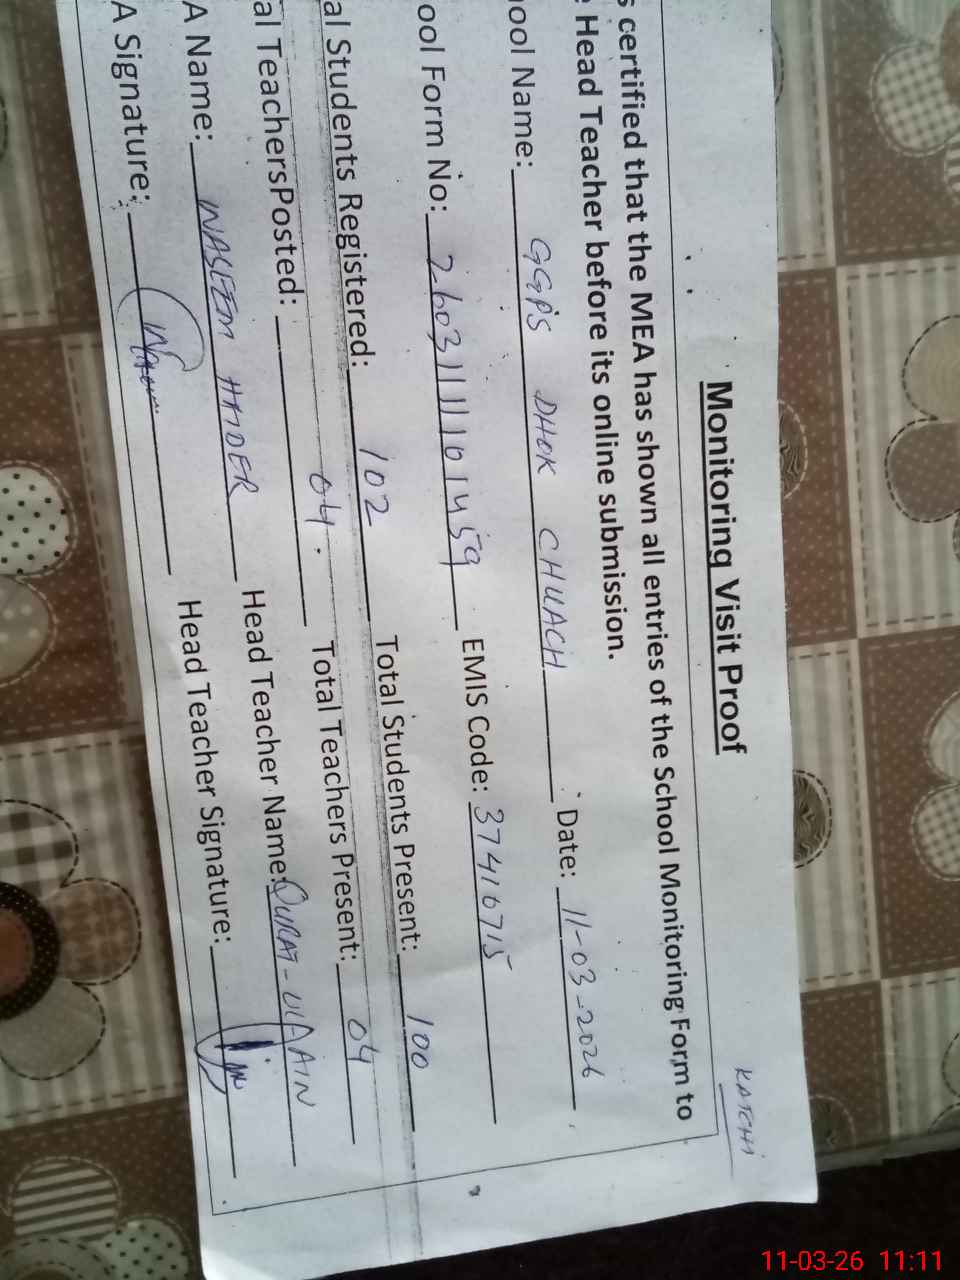 KATCHI
Monitoring Visit Proof
s certified that the MEA has shown all entries of the School Monitoring Form to
Head Teacher before its online submission.
ool Name: GGPS DHOK CHUACH Date: 11-03-2026
ool Form No: EMIS Code: 37410715
al Students Registered: 102 Total Students Present: 100
al TeachersPosted: 04 Total Teachers Present: 04
A Name: NASEEM HAIDER Head Teacher Name: QURAT-ULAAIN
A Signature: Head Teacher Signature:
11-03-26 11:11